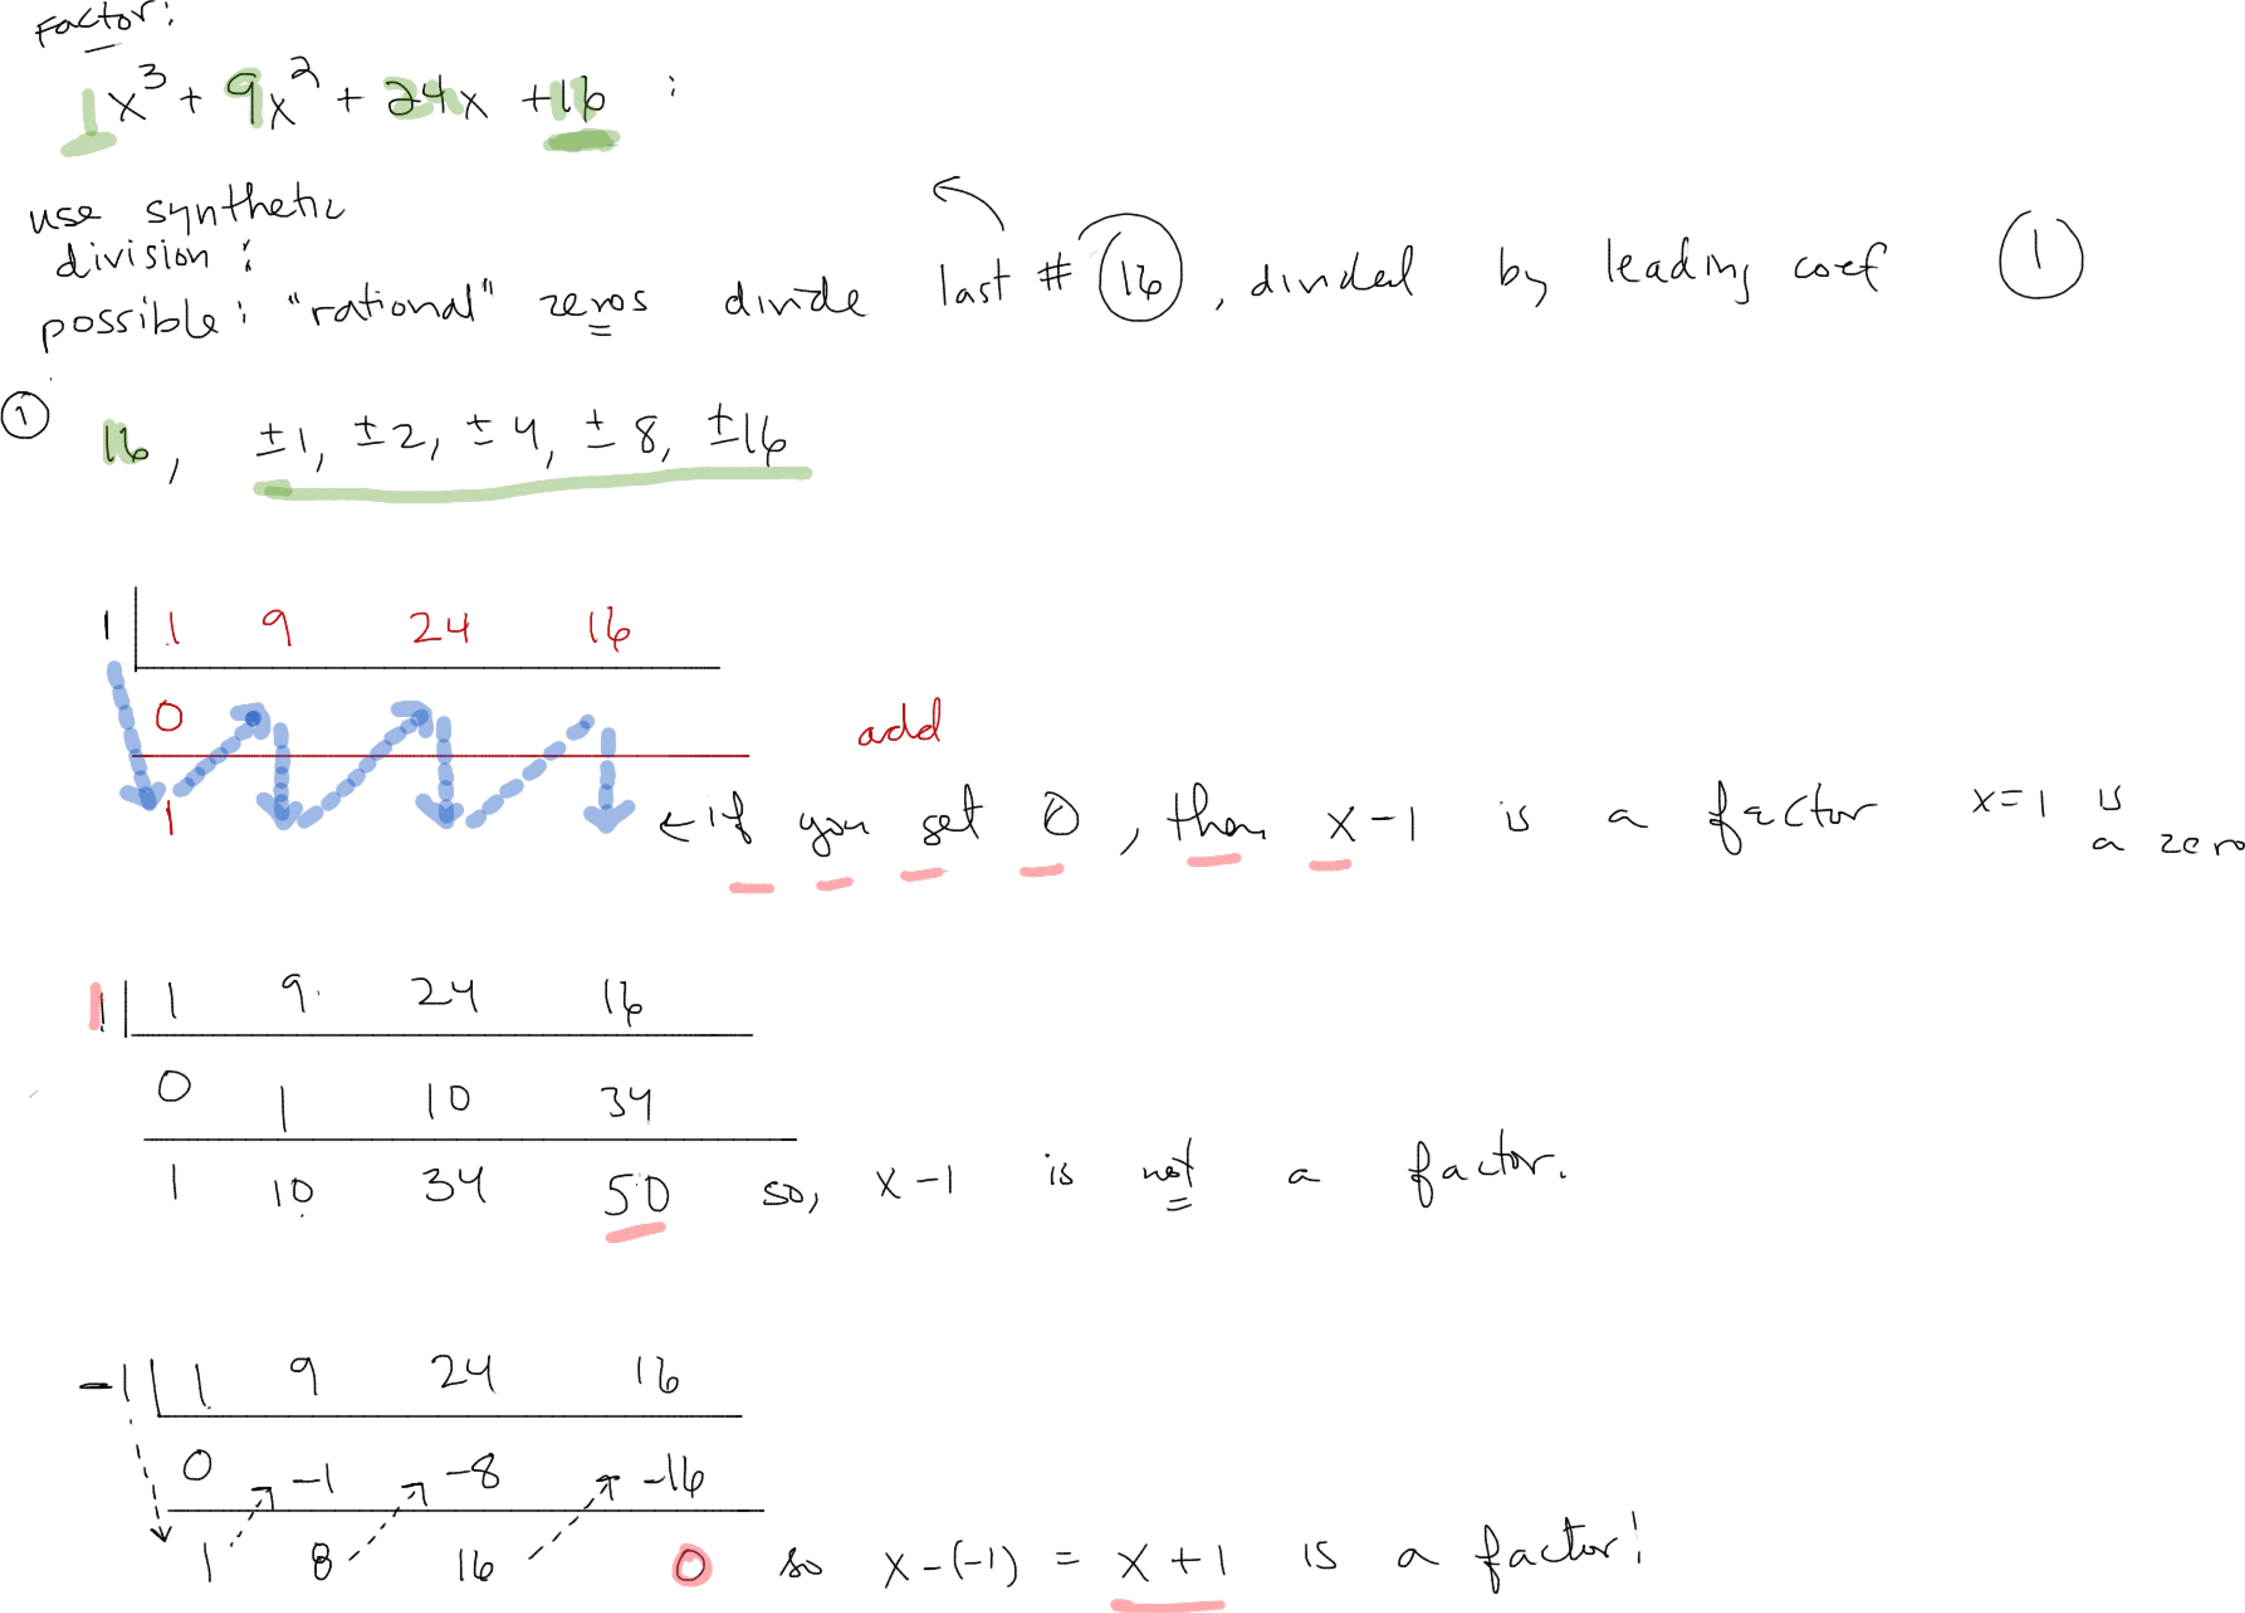 Factor:
1x³ + 9x² + 24x + 16 :
use synthetic
division :
possible: "rational" zeros divide last # 16, divided by leading coef 1
① 16, ±1, ±2, ±4, ±8, ±16
1 | 1 9 24 16
0
add
1 ← if you get 0, then x-1 is a factor x=1 is
a zero
1 | 1 9 24 16
0 1 10 34
1 10 34 50 so, x-1 is not a factor.
-1 | 1 9 24 16
0 -1 -8 -16
1 8 16 0 so x-(-1) = x+1 is a factor!